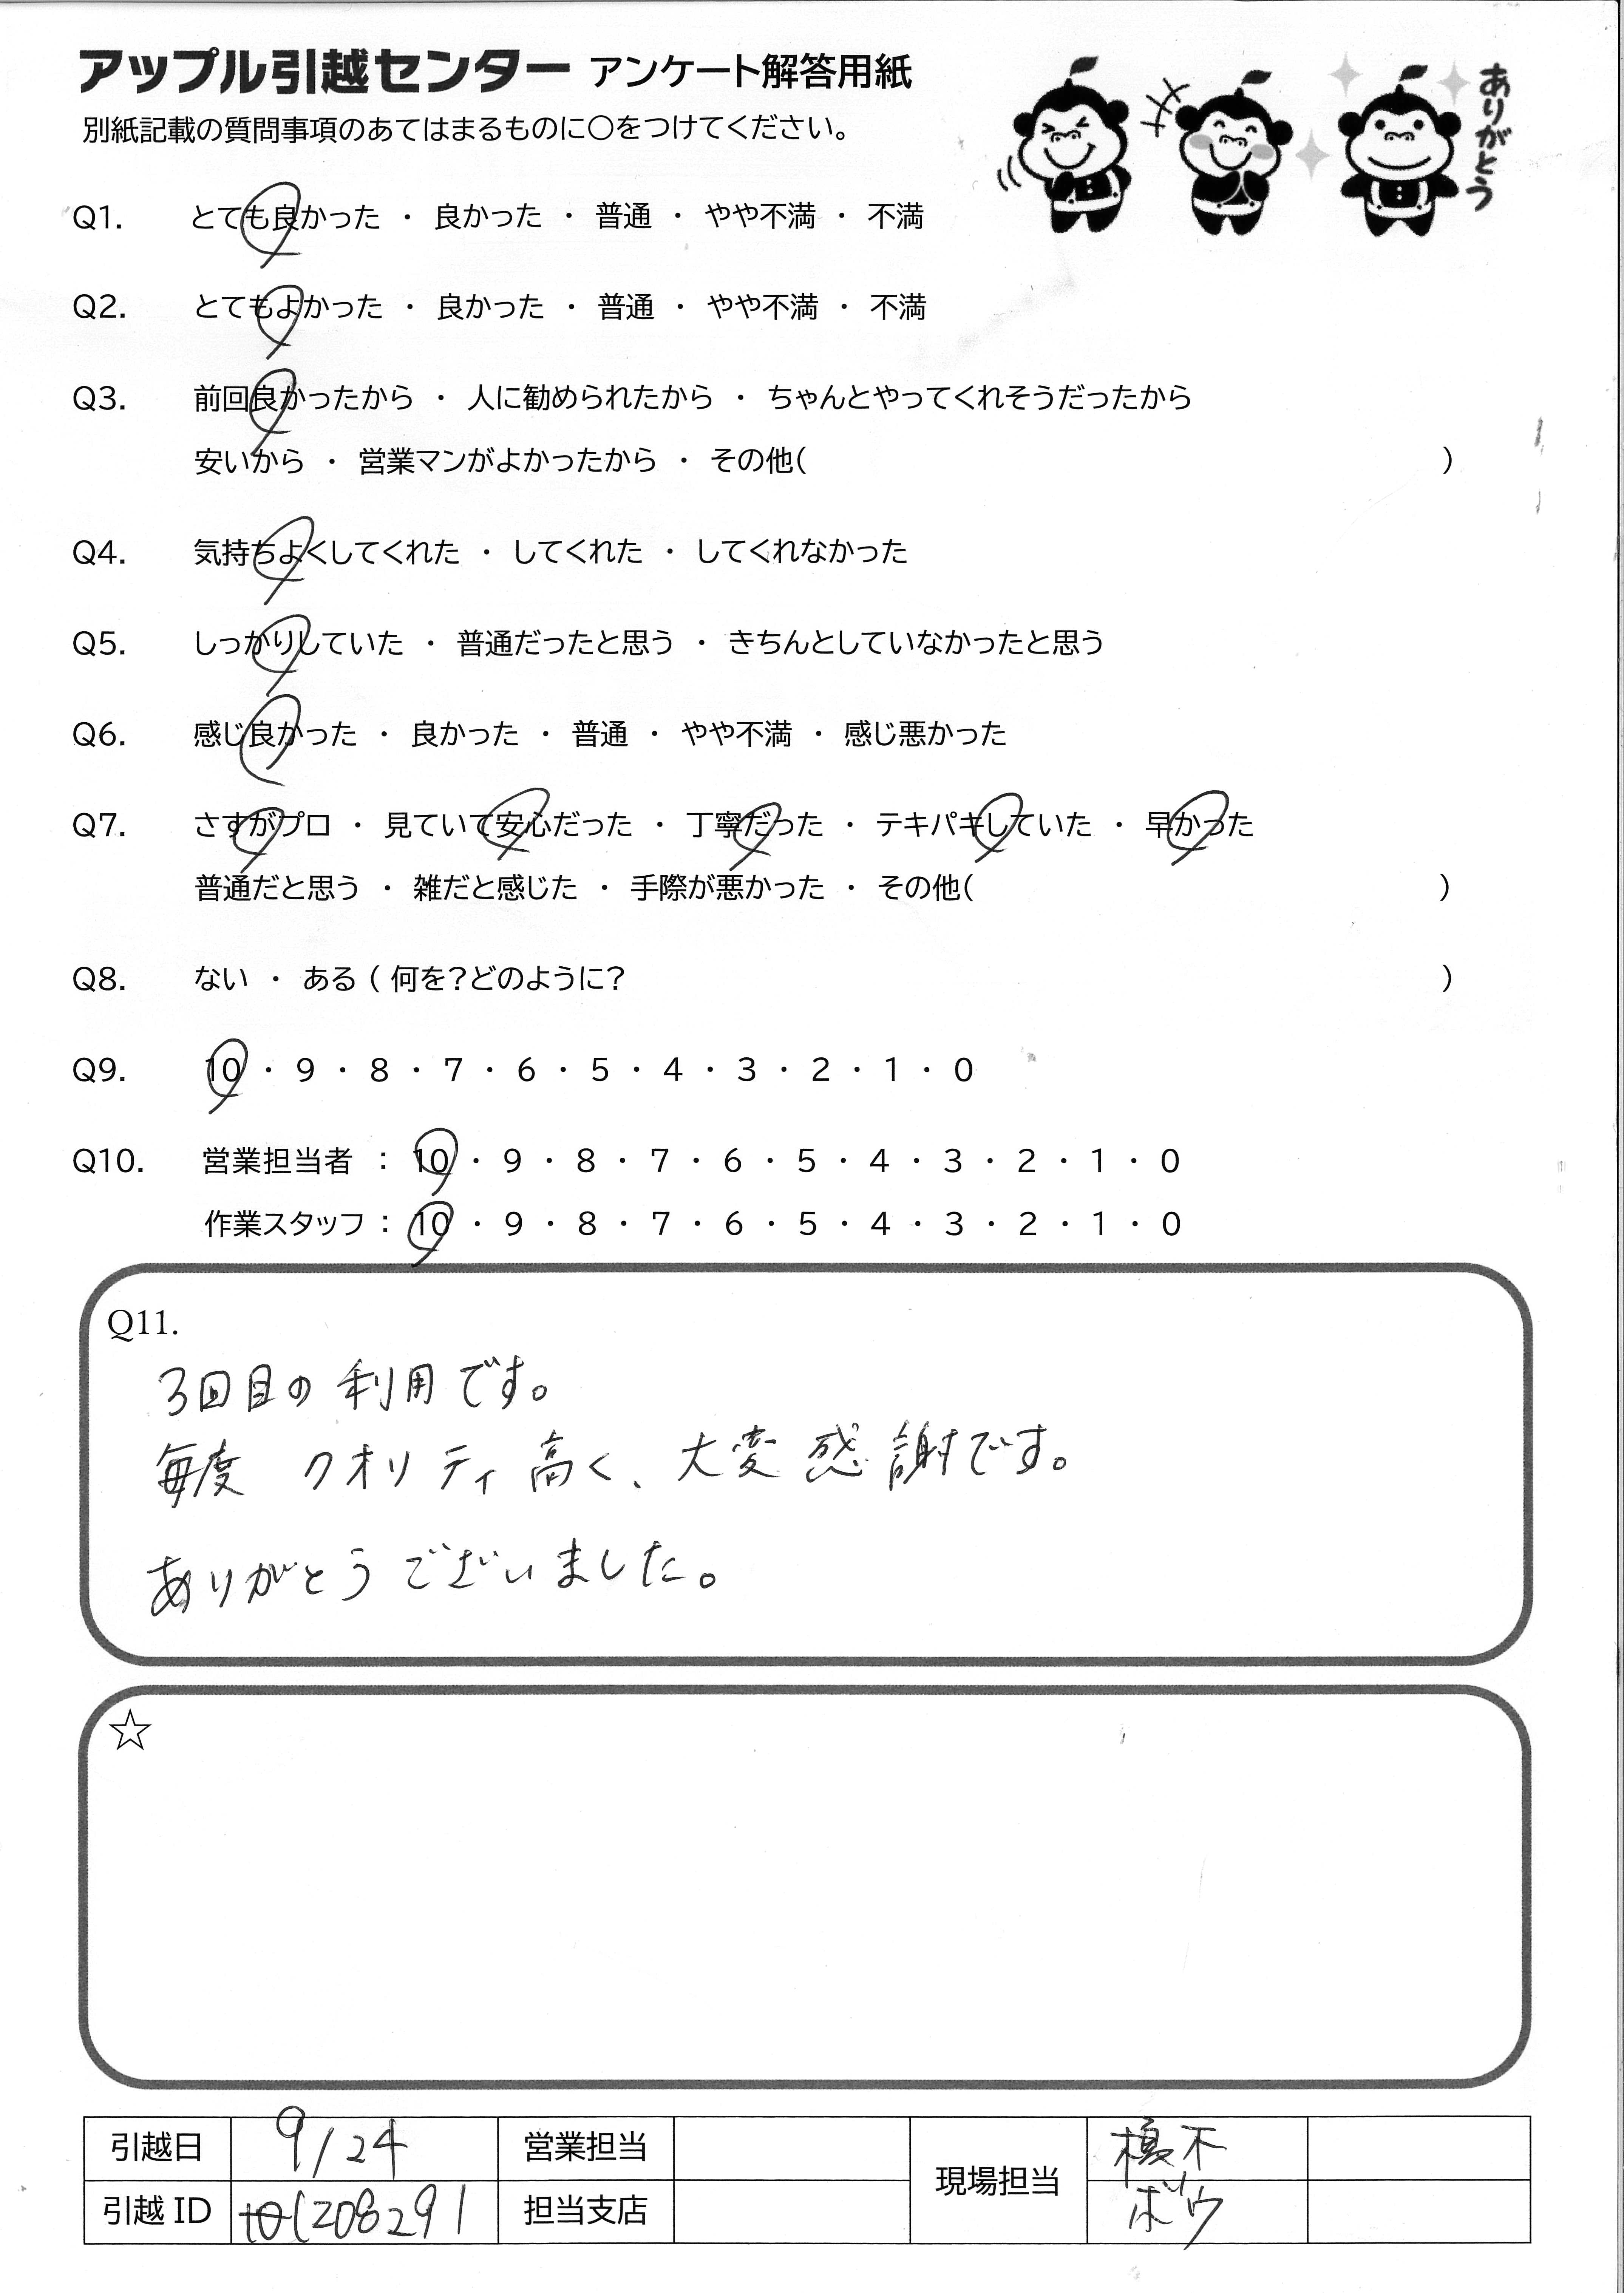 アップル引越センター アンケート解答用紙
別紙記載の質問事項のあてはまるものに○をつけてください。
ありがとう
Q1. とても良かった ・ 良かった ・ 普通 ・ やや不満 ・ 不満
Q2. とてもよかった ・ 良かった ・ 普通 ・ やや不満 ・ 不満
Q3. 前回良かったから ・ 人に勧められたから ・ ちゃんとやってくれそうだったから
安いから ・ 営業マンがよかったから ・ その他( )
Q4. 気持ちよくしてくれた ・ してくれた ・ してくれなかった
Q5. しっかりしていた ・ 普通だったと思う ・ きちんとしていなかったと思う
Q6. 感じ良かった ・ 良かった ・ 普通 ・ やや不満 ・ 感じ悪かった
Q7. さすがプロ ・ 見ていて安心だった ・ 丁寧だった ・ テキパキしていた ・ 早かった
普通だと思う ・ 雑だと感じた ・ 手際が悪かった ・ その他( )
Q8. ない ・ ある ( 何を?どのように? )
Q9. 10 ・ 9 ・ 8 ・ 7 ・ 6 ・ 5 ・ 4 ・ 3 ・ 2 ・ 1 ・ 0
Q10. 営業担当者 : 10 ・ 9 ・ 8 ・ 7 ・ 6 ・ 5 ・ 4 ・ 3 ・ 2 ・ 1 ・ 0
作業スタッフ : 10 ・ 9 ・ 8 ・ 7 ・ 6 ・ 5 ・ 4 ・ 3 ・ 2 ・ 1 ・ 0
Q11.
3回目の利用です。
毎度 クオリティ高く、大変感謝です。
ありがとうございました。
☆
引越日 9/24 営業担当 現場担当 榎木
引越ID 担当支店 ボウ